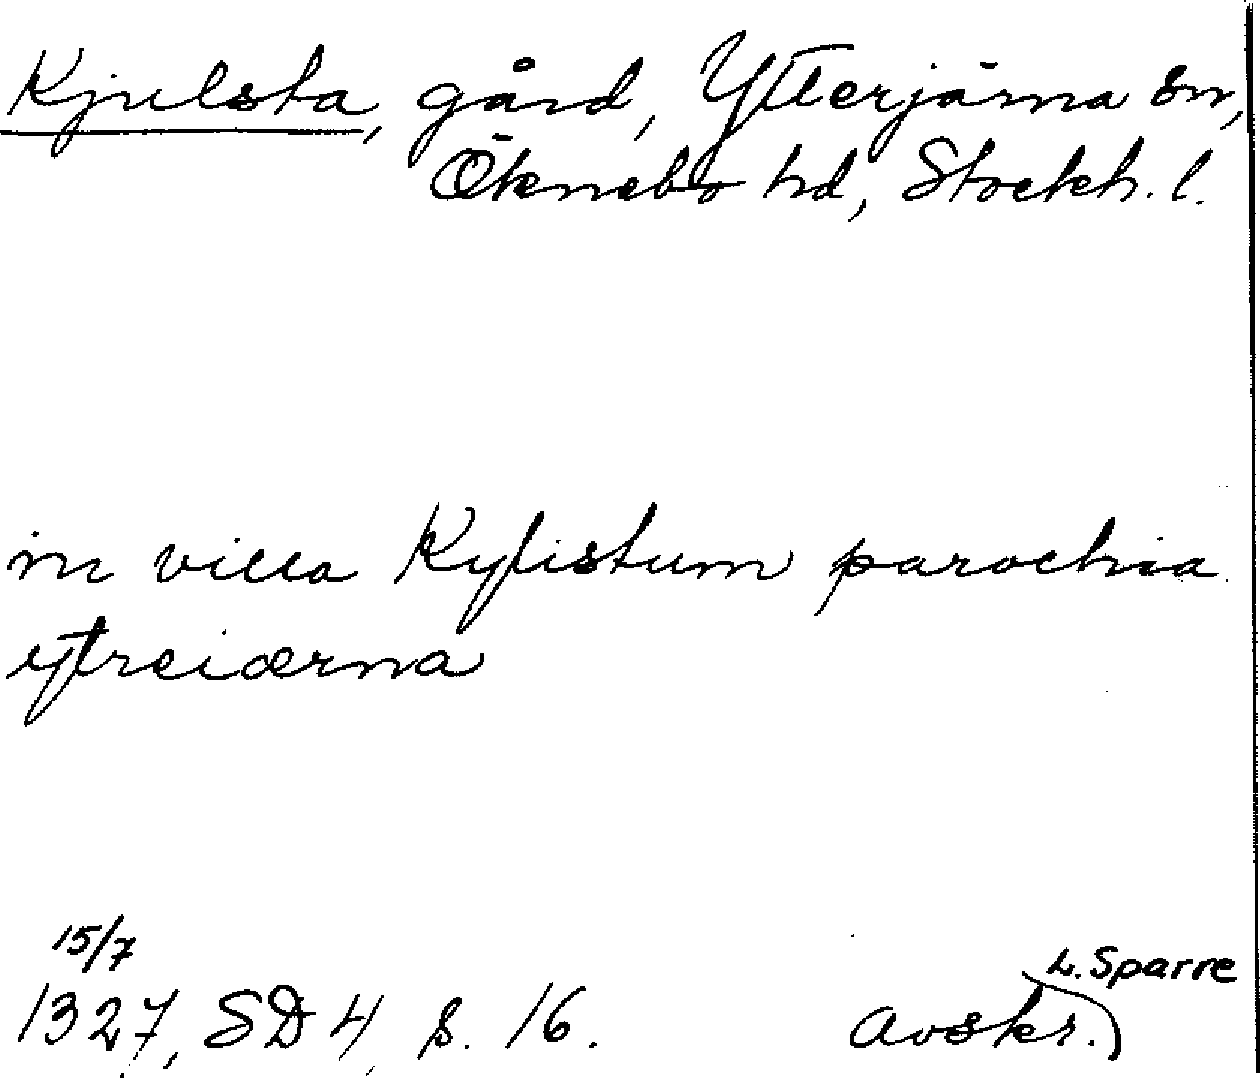 Kjulsta, gård, Ytterjärna sn,
Öknebo hd, Stockh. l.
in villa Kylistum parochia
ytreiærna
15/7
1327, SD 4 s. 16.
L. Sparre
Avskr.)